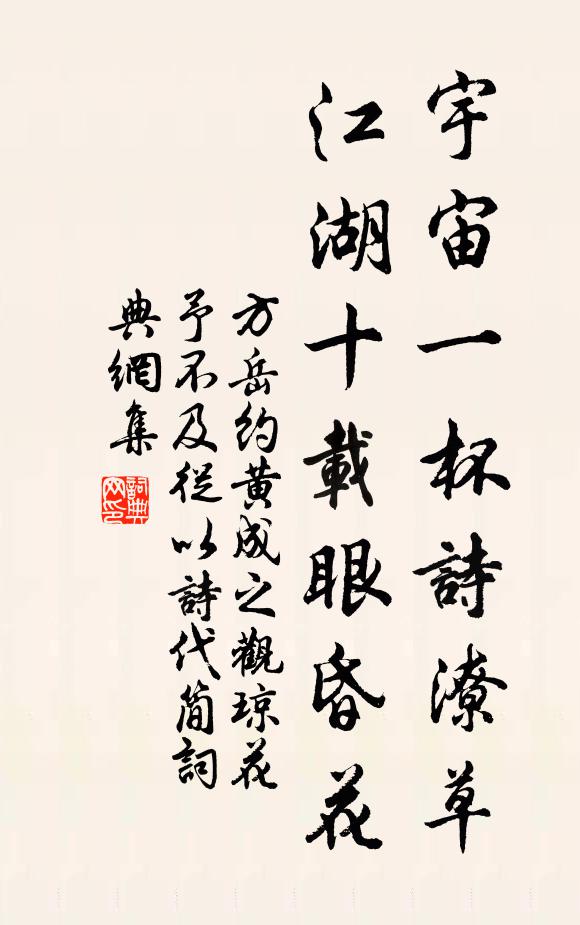 宇宙一杯詩潦草
江湖十載眼昏花
方岳約黄成之觀琼花
予不及從以詩代簡詞
典網集
詞典网印